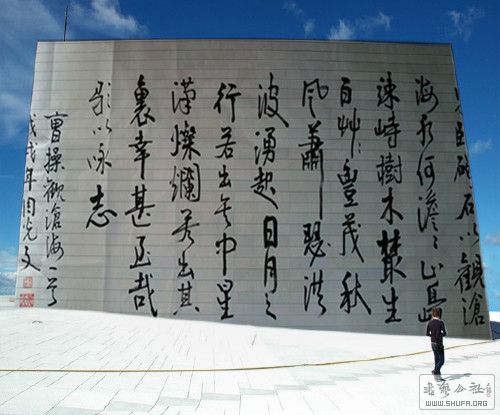 東臨碣石以觀滄
海水何澹〻山島
竦峙樹木叢生
百艸豐茂秋
風蕭瑟洪
波湧起日月之
行若出其中星
漢燦爛若出其
裏幸甚至哉
歌以咏志
曹操觀滄海一首
戊戌年
書藝公社
WWW.SHUFA.ORG